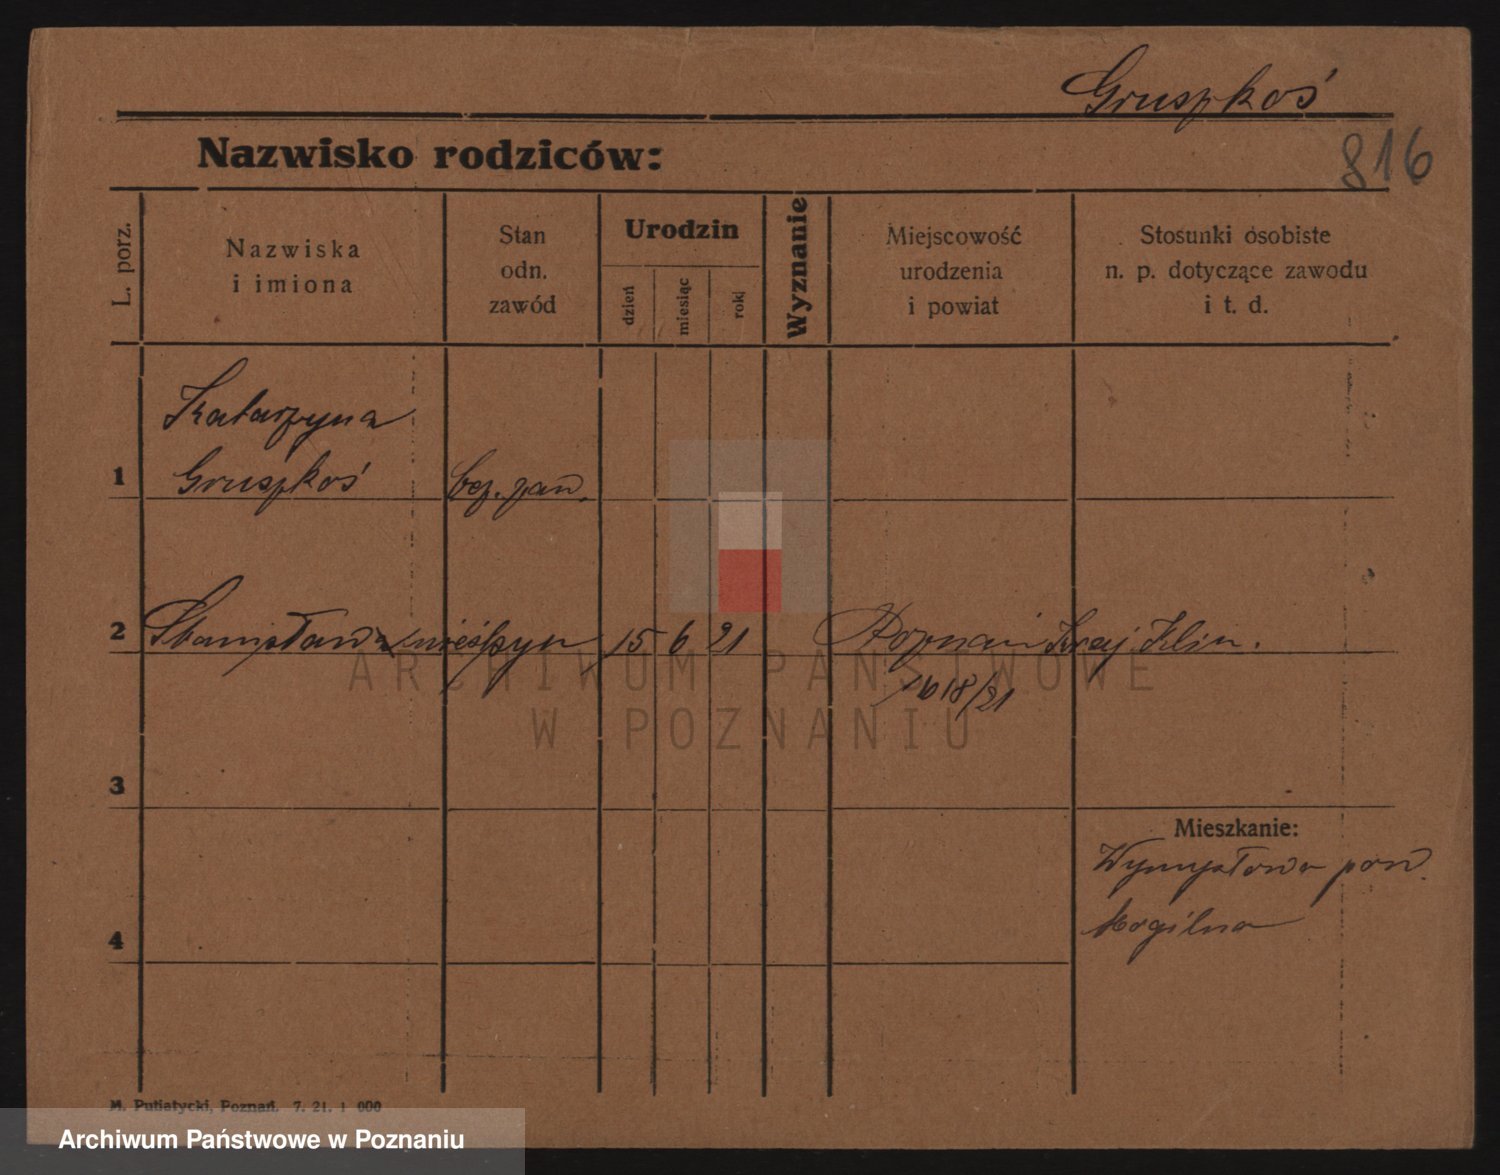 Gruszkoś
816
Nazwisko rodziców:
L. porz.
Nazwiska
i imiona
Stan
odn.
zawód
Urodzin
dzień
miesiąc
rok
Wyznanie
Miejscowość
urodzenia
i powiat
Stosunki osobiste
n. p. dotyczące zawodu
i t. d.
Katarzyna
1 Gruszkoś bez. zaw.
2 Stanisława nieślzyn 15 6 21 Poznań Kraj. Klin.
1618/21
ARCHIWUM PAŃSTWOWE
W POZNANIU
3
Mieszkanie:
Wymysłowo pow.
Mogilno
4
M. Putiatycki, Poznań. 7. 21. 1 000
Archiwum Państwowe w Poznaniu